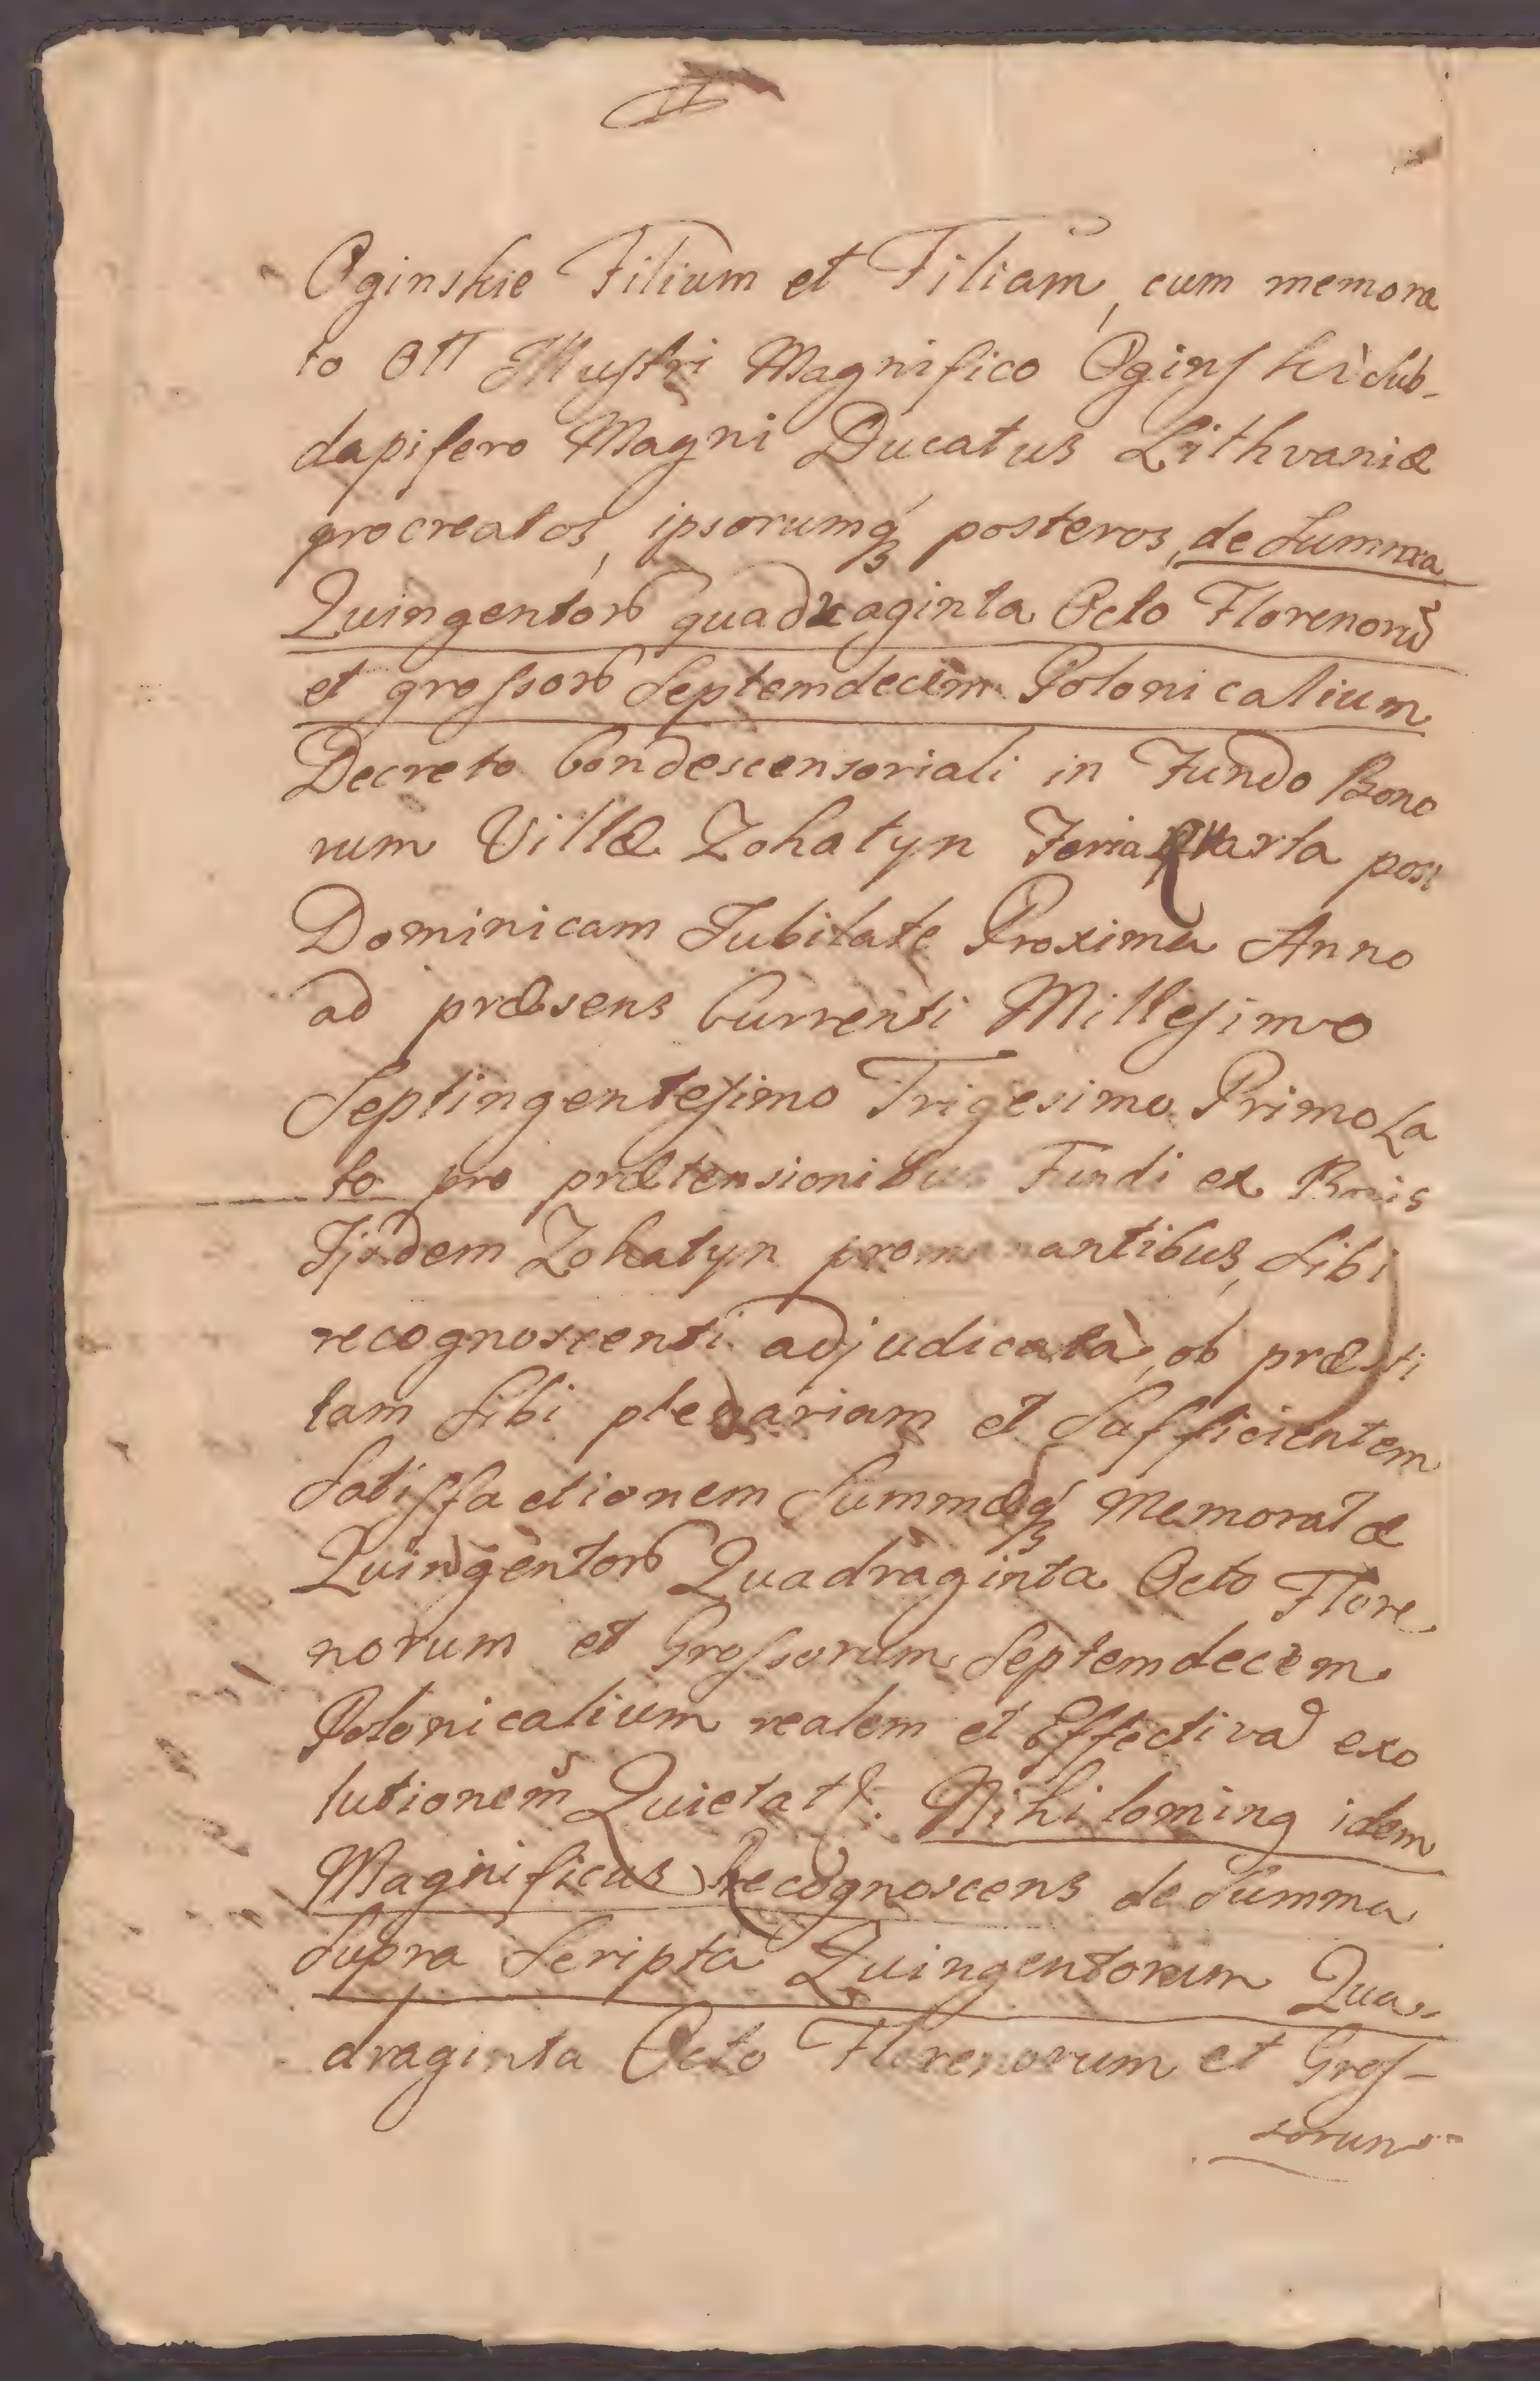 Oginskie Filium et Filiam, cum memora
to Oll Illustri Magnifico Oginski Sub-
dapifero Magni Ducatus Lithvaniæ
procreatos, ipsorumq posteros, de Summa
Quingentor quadraginta Octo Florenorũ
et grossor Septemdecim Polonicalium
Decreto Condescensoriali in Fundo Bono
rum Villæ Zohatyn Feria Quarta post
Dominicam Jubilate Proxima Anno
ad præsens Currenti Millesimo
Septingentesimo Trigesimo Primo La
to pro prætensionibus Fundi ex Bonis
Ijsdem Zohatyn promanantibus, Sibi
recognoscenti adjudicatà, ob præsti
tam Sibi plenariam et Sufficientem
Satisfactionem Summæq Memoratæ
Quingentor Quadraginta Octo Flore
norum et Grossorum Septemdecem
Polonicalium realem et Effectivã exo
lutionem Quietat. Nihilominq idem
Magnificus Recognoscens de Summa
Supra Scripta Quingentorum Qua-
draginta Octo Florenorum et Gros-
sorum